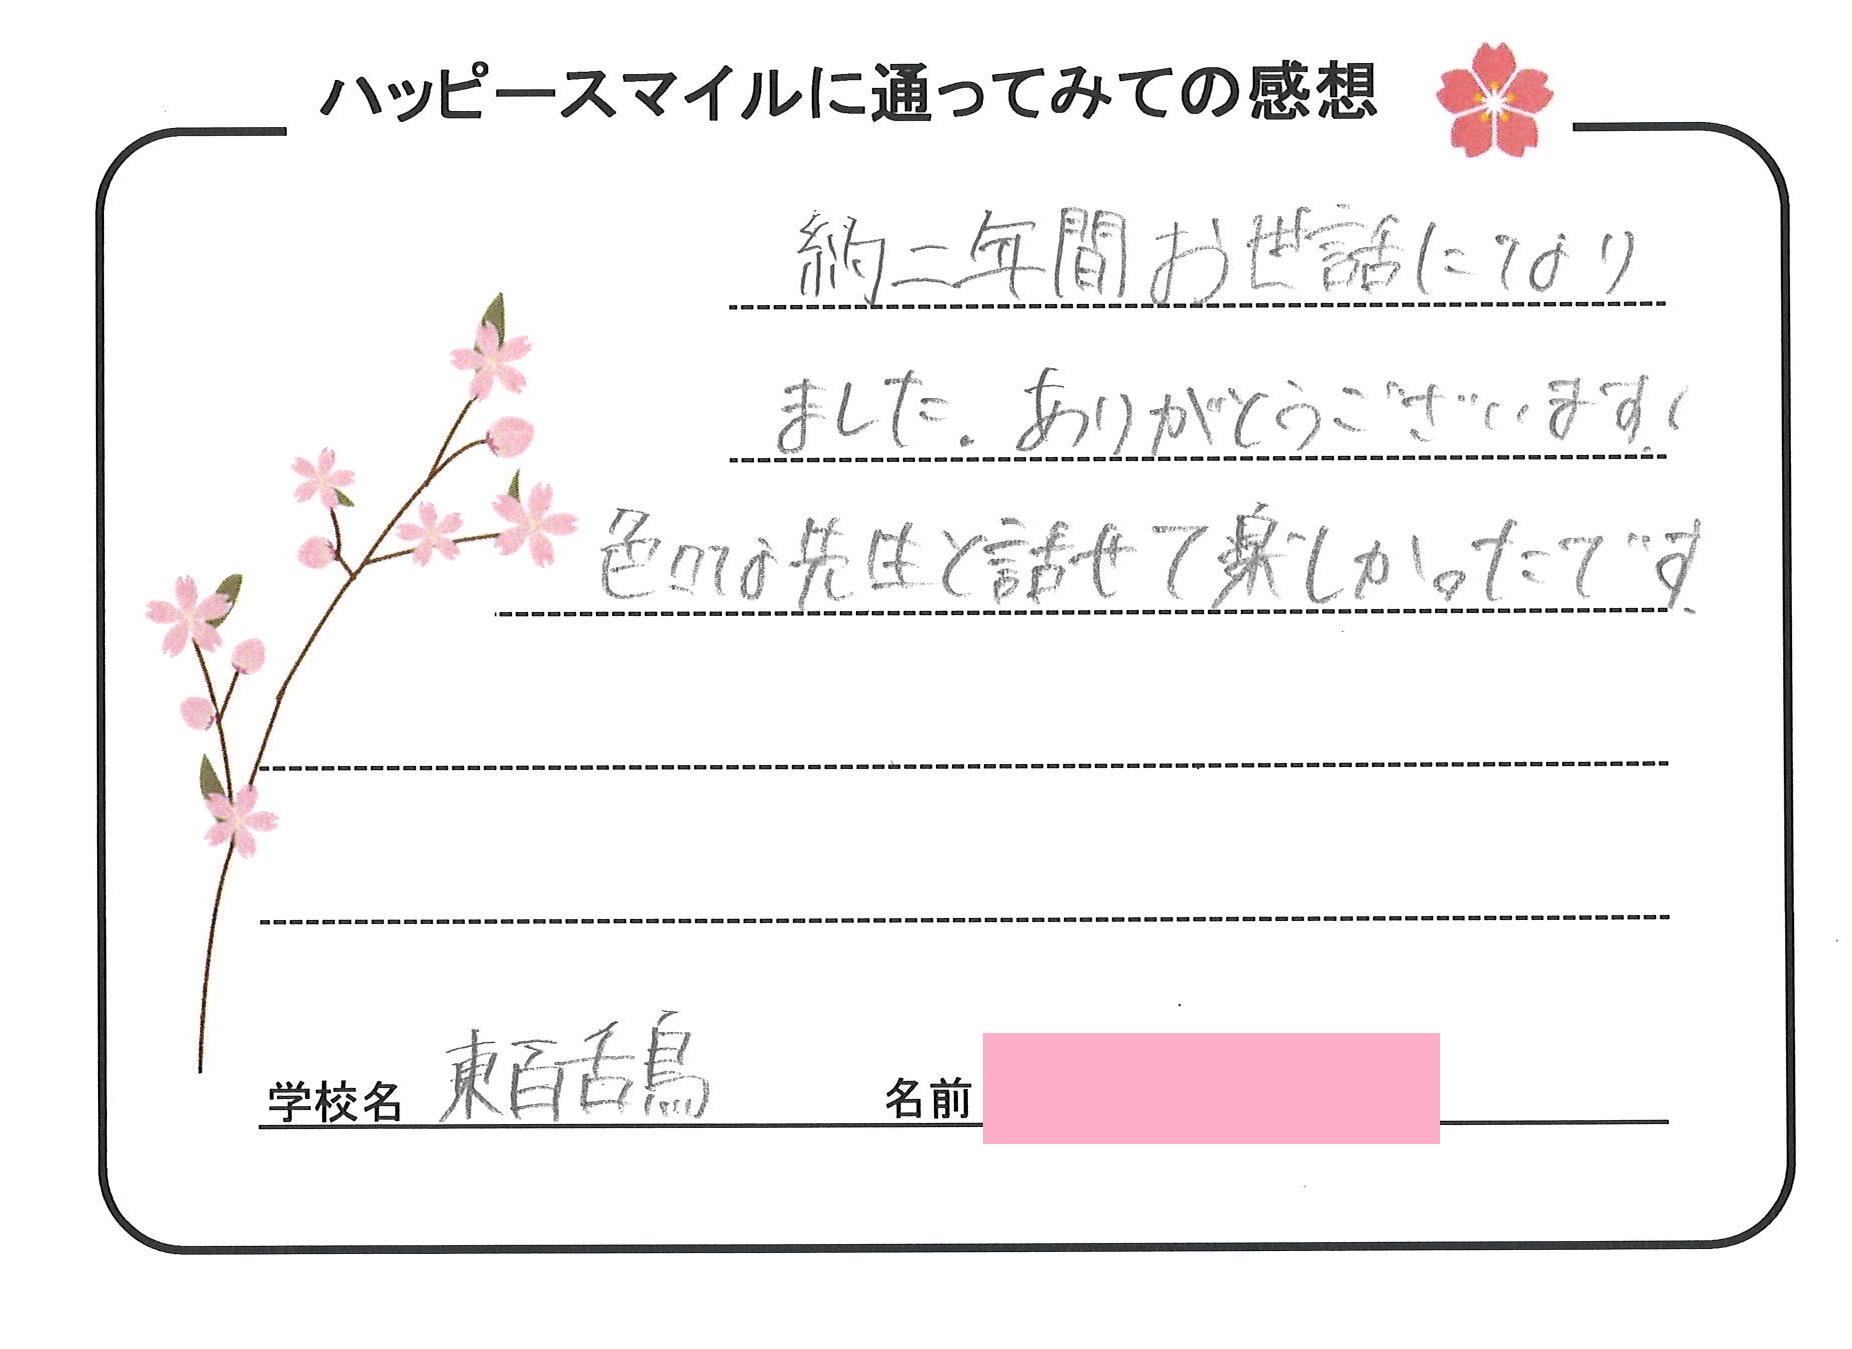 ハッピースマイルに通ってみての感想
約二年間お世話になり
ました。ありがとうございます!
色々な先生と話せて楽しかったです
学校名 東百舌鳥 名前